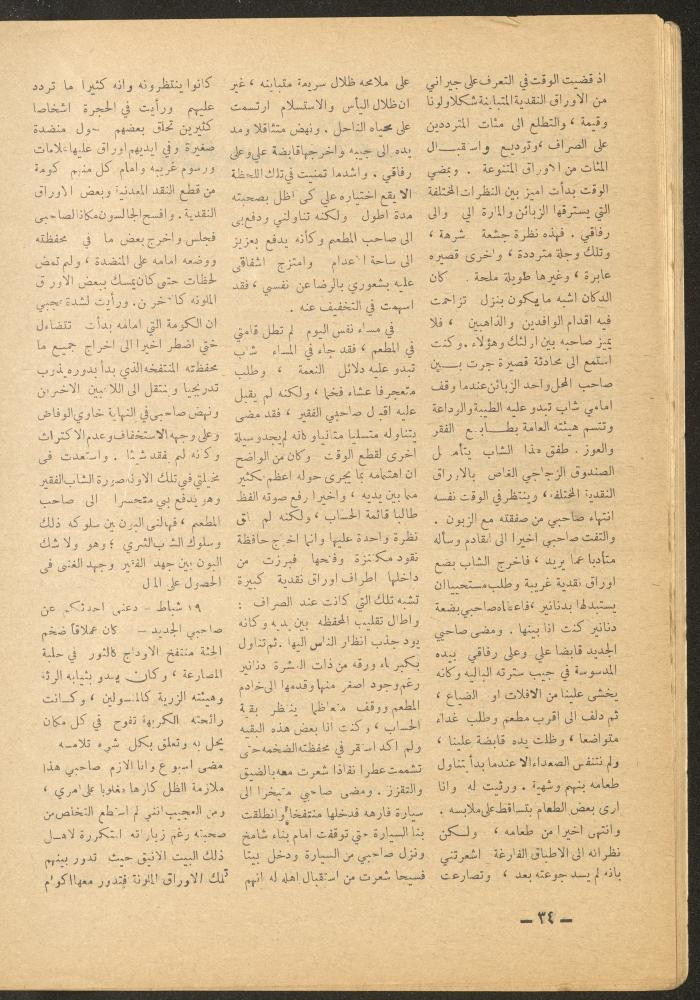 اذ قضيت الوقت في التعرف على جيراني
من الاوراق النقدية المتباينة شكلا ولونا
وقيمة ، والتطلع الى مئات المترددين
على الصراف ، وتوديع واستقبال
المئات من الاوراق المتنوعة . وبمضي
الوقت بدأت اميز بين النظرات المختلفة
التي يسترقها الزبائن والمارة الي والى
رفاقي . فهذه نظرة جشعة شرهة ،
وتلك وجلة مترددة ، واخرى قصيره
عابرة ، وغيرها طويلة ملحة . كان
الدكان اشبه ما يكون بنزل تزاحمت
فيه اقدام الوافدين والذاهبين ، فلا
يميز صاحبه بين اولئك وهؤلاء . وكنت
استمع الى محادثة قصيرة جرت بين
صاحب المحل واحد الزبائن عندما وقف
امامي شاب تبدو عليه الطيبة والوداعة
وتتسم هيئته العامة بطابع الفقر
والعوز . طفق هذا الشاب يتأمل
الصندوق الزجاجي الغاص بالاوراق
النقدية المختلفة ، وينتظر في الوقت نفسه
انتهاء صاحبي من صفقته مع الزبون .
والتفت صاحبي اخيرا الى القادم وسأله
متأدبا عما يريد ، فاخرج الشاب بضع
اوراق نقدية غريبة وطلب مستحييا ان
يستبدلها بدنانير ، فاعطاه صاحبي بضعة
دنانير كنت انا بينها . ومضى صاحبي
الجديد قابضا علي وعلى رفاقي بيده
المدسوسة في جيب سترته الباليه وكانه
يخشى علينا من الافلات او الضياع ،
ثم دلف الى اقرب مطعم وطلب غداء
متواضعا ، وظلت يده قابضة علينا ،
ولم نتنفس الصعداء الا عندما بدأ يتناول
طعامه بنهم وشهية . ورثيت له وانا
ارى بعض الطعام يتساقط على ملابسه .
وانتهى اخيرا من طعامه ، ولكن
نظراته الى الاطباق الفارغة اشعرتني
بانه لم يسد جوعته بعد ، وتصارعت
على ملامحه ظلال سريعة متباينه ، غير
ان ظلال اليأس والاستسلام ارتسمت
على محياه الناحل . ونهض متثاقلا ومد
يده الى جيبه واخرجها قابضة علي وعلى
رفاقي . واشد ما تمنيت في تلك اللحظة
الا يقع اختياره علي كى اظل بصحبته
مدة اطول ولكنه تناولني ودفع بي
الى صاحب المطعم وكأنه يدفع بعزيز
الى ساحة الاعدام وامتزج اشفاقي
عليه بشعوري بالرضا عن نفسي ، فقد
اسهمت في التخفيف عنه .
في مساء نفس اليوم لم تطل قامتي
في المطعم ، فقد جاء في المساء شاب
تبدو عليه دلائل النعمة ، وطلب
متعجرفا عشاء فخما ، ولكنه لم يقبل
عليه اقبال صاحبي الفقير ، فقد مضى
يتناوله متسليا متانيا وكانه لم يجد وسيلة
اخرى لقطع الوقت وكان من الواضح
ان اهتمامه بما يجرى حوله اعظم بكثير
مما بين يديه ، واخيرا رفع صوته الفظ
طالبا قائمة الحساب ، ولكنه لم يلق
نظرة واحدة عليها وانما اخرج حافظة
نقود مكتنزة وفتحها فبرزت من
داخلها اطراف اوراق نقدية كبيرة
تشبه تلك التي كانت عند الصراف :
واطال تقليب المحفظه بين يديه وكانه
يود جذب انظار الناس اليها . ثم تناول
بكبرياء ورقه من ذات العشرة دنانير
رغم وجود اصغر منها وقدمها الى خادم
المطعم ووقف متعاظما ينتظر بقية
الحساب ، وكنت انا بعض هذه البقيه
ولم اكد استقر في محفظته الضخمه حتى
تشممت عطرا نفاذا شعرت معه بالضيق
والتقزز . ومضى صاحبي متبخترا الى
سيارة فارهه فدخلها منتفخا وانطلقت
بنا السيارة حتى توقفت امام بناء شامخ
ونزل صاحبي من السيارة ودخل بيتا
فسيحا شعرت من استقبال اهله له انهم
كانوا ينتظرونه وانه كثيرا ما تردد
عليهم ورأيت في الحجرة اشخاصا
كثيرين تحلق بعضهم حول منضدة
صغيرة وفي ايديهم اوراق عليها علامات
ورسوم غريبه وامام كل منهم كومة
من قطع النقد المعدنية وبعض الاوراق
النقدية . وافسح الجالسون مكانا لصاحبي
فجلس واخرج بعض ما في محفظته
ووضعه امامه على المنضدة ، ولم تمض
لحظات حتى كان يمسك ببعض الاوراق
الملونه كالآخرين . ورأيت لشدة عجبي
ان الكومة التي امامه بدأت تتضاءل
حتى اضطر اخيرا الى اخراج جميع ما
محفظته المنتفخه الذي بدأ بدوره يذوب
تدريجيا وينتقل الى اللاعبين الاخرين
ونهض صاحبي في النهاية خاوي الوفاض
وعلى وجهه الاستخفاف وعدم الاكتراث
وكأنه لم يفقد شيئا . واستعدت في
مخيلتي في تلك الاونه صورة الشاب الفقير
وهو يدفع بي متحسرا الى صاحب
المطعم ، فهالني البون بين سلوكه ذلك
وسلوك الشاب الثري ؛ وهو ولا شك
البون بين جهد الفقير وجهد الغني فى
الحصول على المال
١٩ شباط – دعني احدثكم عن
صاحبي الجديد – كان عملاقا ضخم
الجثة منتفخ الاوداج كالثور في حلبة
المصارعة ، وكان يبدو بثيابه الرثة
وهيئته الزرية كالمتسولين ، وكانت
رائحته الكريهة تفوح في كل مكان
يحل به وتعلق بكل شيء تلامسه
مضى اسبوع وانا الازم صاحبي هذا
ملازمة الظل كارها مغلوبا على امري ،
ومن العجيب انني لم استطع التخلص من
صحبته رغم زياراته المتكررة لاهل
ذلك البيت الانيق حيث تدور بينهم
تلك الاوراق الملونة فتدور معها اكوام
– ٣٤ –